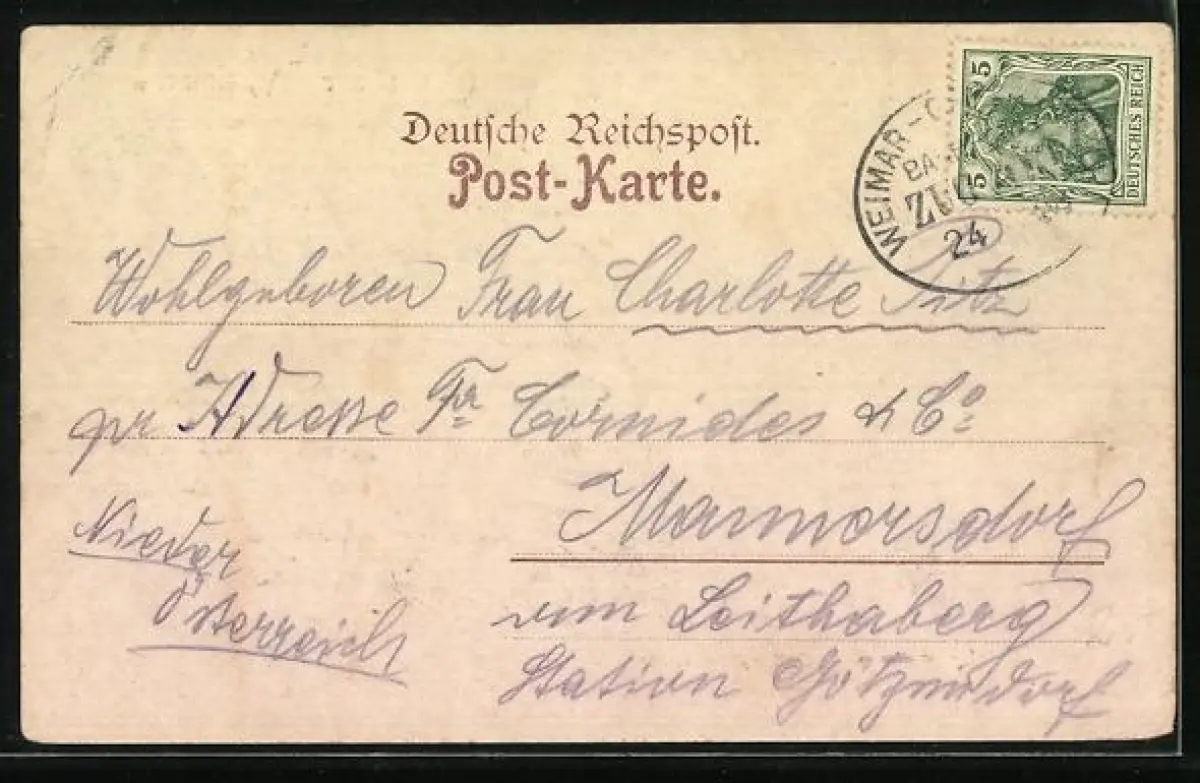 Deutsche Reichspost.
Post-Karte.
5 5
DEUTSCHES REICH
WEIMAR-
ZUG
24
Wohlgeboren Frau Charlotte
pr Adresse Fr Cornides & Co
Mannersdorf
am Leithaberg
Station Götzendorf
Nieder
Österreich